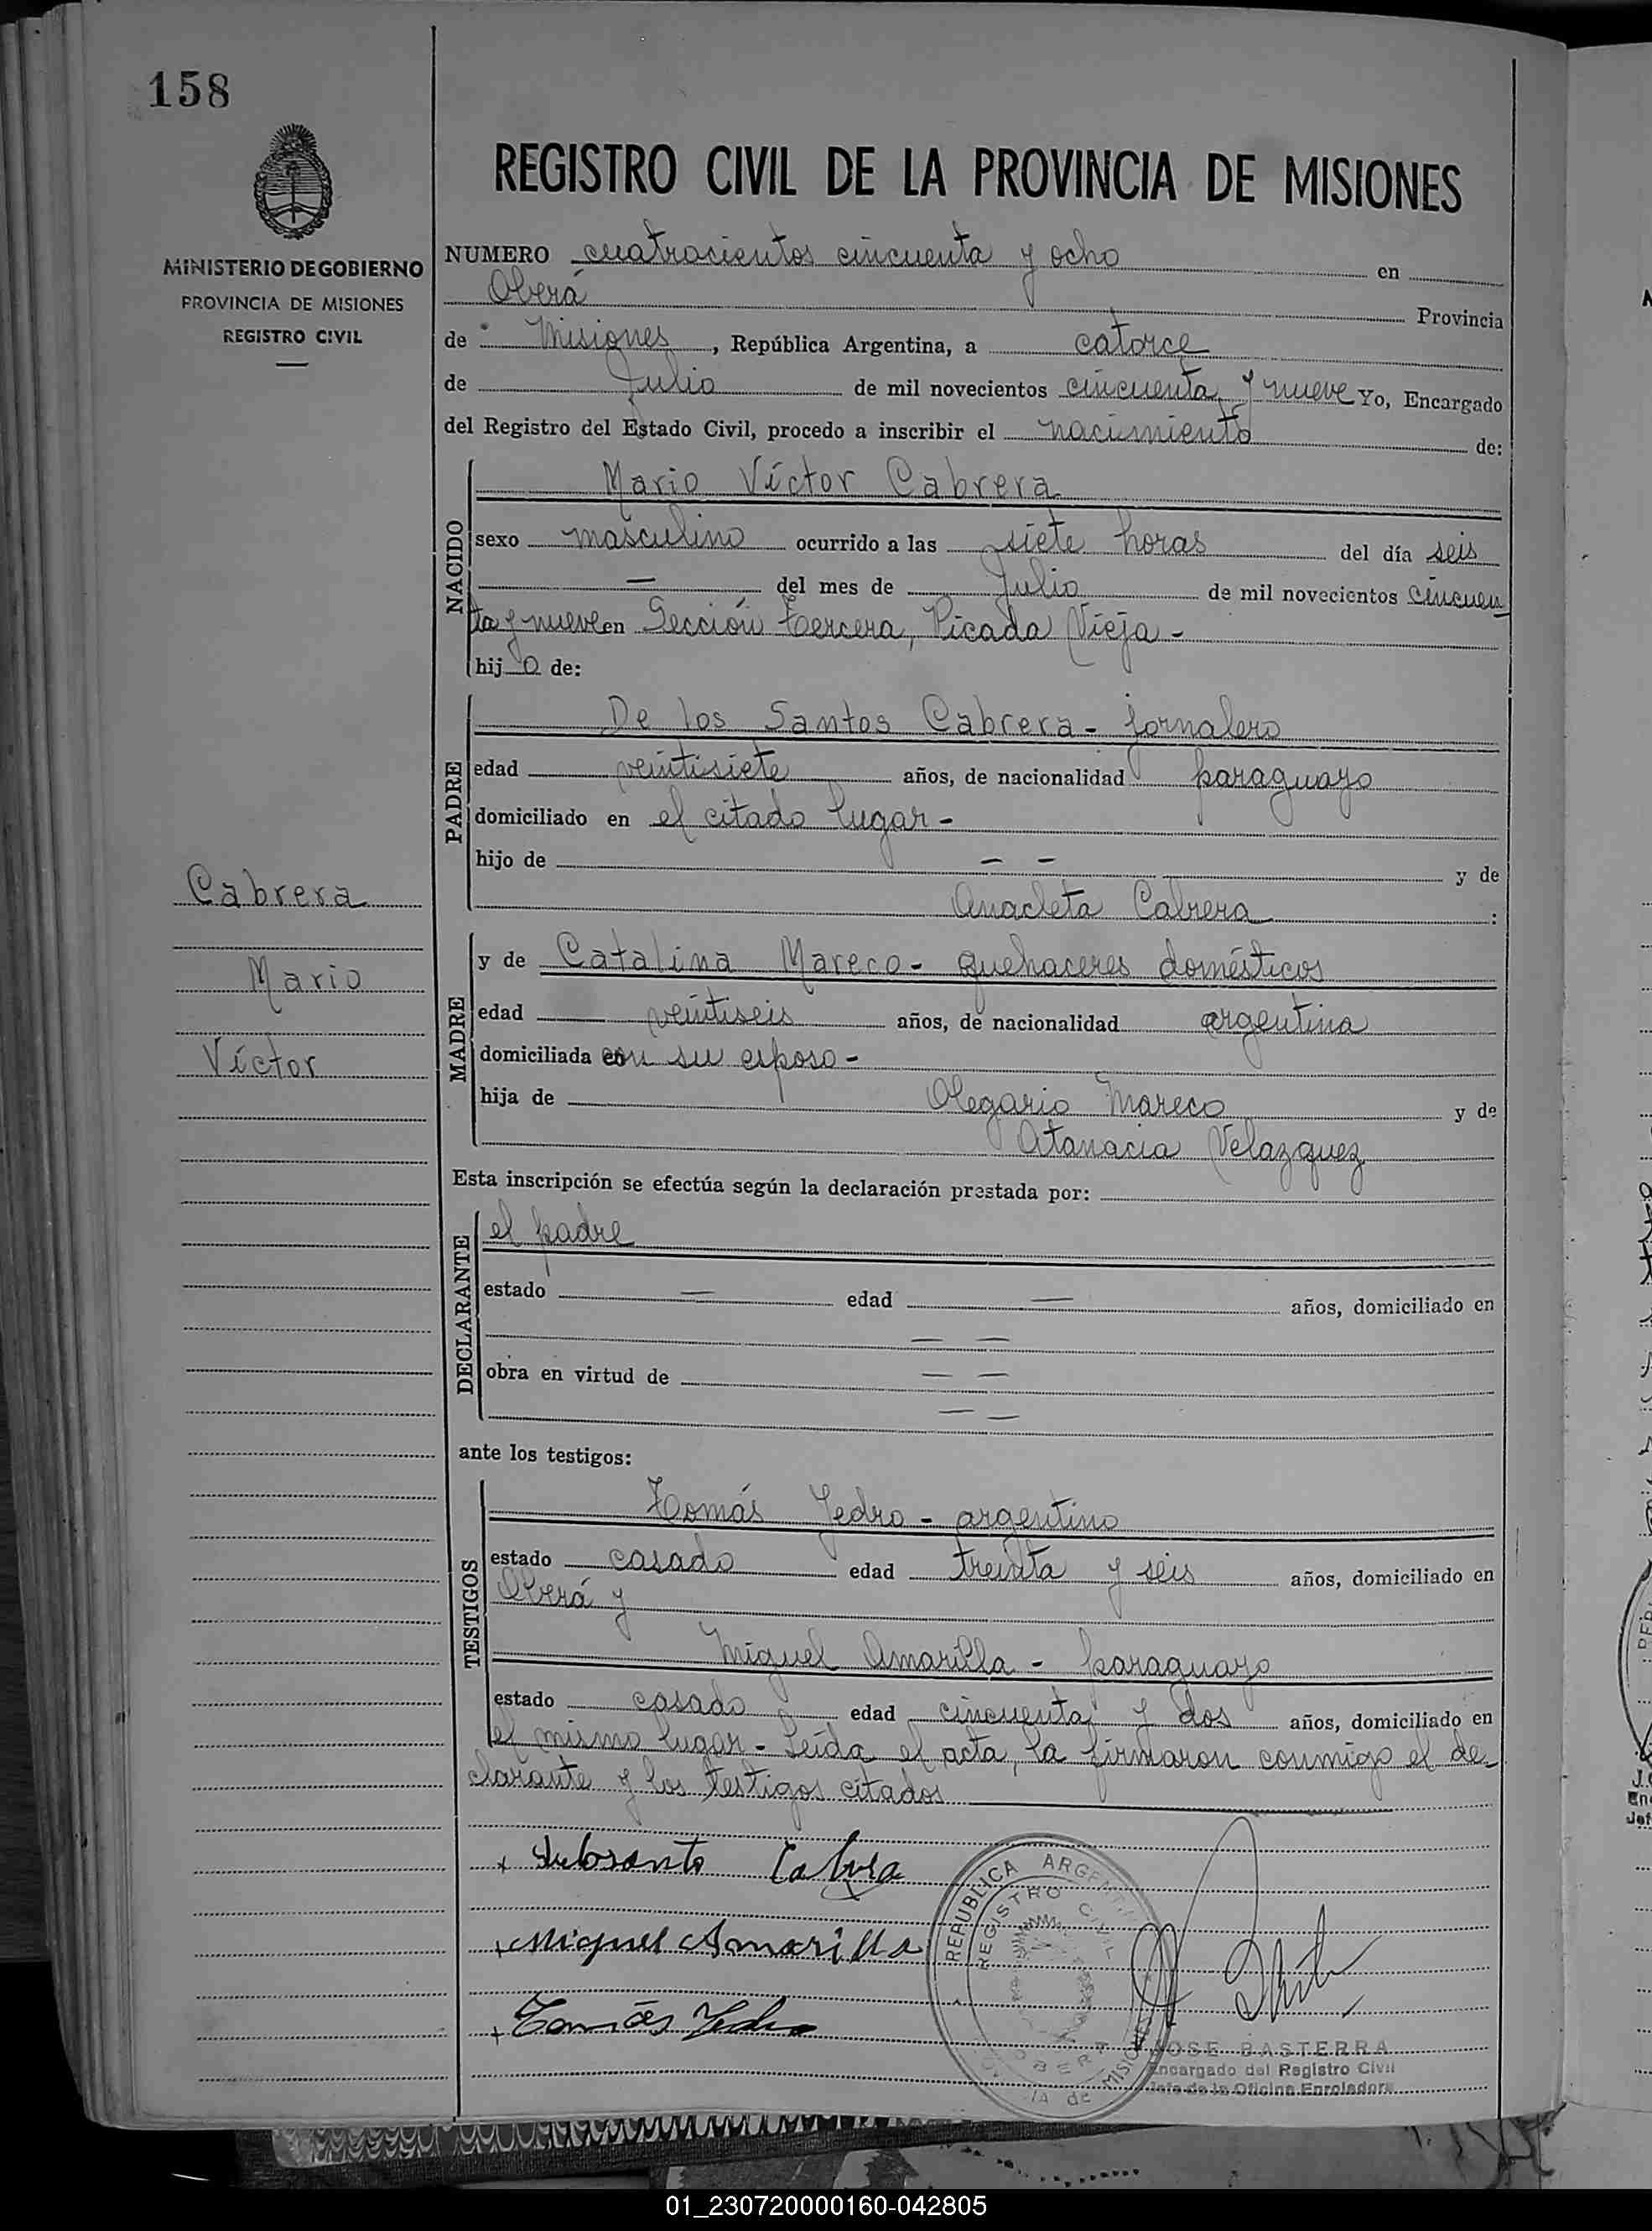 158
MINISTERIO DE GOBIERNO
PROVINCIA DE MISIONES
REGISTRO CIVIL
Cabrera
Mario
Víctor
REGISTRO CIVIL DE LA PROVINCIA DE MISIONES
NUMERO cuatrocientos cincuenta y ocho en
Oberá Provincia
de Misiones, República Argentina, a catorce
de Julio de mil novecientos cincuenta y nueve Yo, Encargado
del Registro del Estado Civil, procedo a inscribir el nacimiento de:
NACIDO
Mario Víctor Cabrera
sexo masculino ocurrido a las siete horas del día seis
— del mes de Julio de mil novecientos cincuen
ta y nueve en Sección tercera, Picada Vieja -
hijo de:
PADRE
De los Santos Cabrera - jornalero
edad veintisiete años, de nacionalidad paraguayo
domiciliado en el citado lugar -
hijo de — — y de
Anacleta Cabrera :
MADRE
y de Catalina Mareco - quehaceres domésticos
edad veintiseis años, de nacionalidad argentina
domiciliada con su esposo -
hija de Olegario Mareco y de
Atanacia Velazquez
Esta inscripción se efectúa según la declaración prestada por:
DECLARANTE
el padre
estado — edad — años, domiciliado en
— —
obra en virtud de — —
— —
ante los testigos:
TESTIGOS
Tomás Yedro - argentino
estado casado edad treinta y seis años, domiciliado en
Oberá y
Miguel Amarilla - paraguayo
estado casado edad cincuenta y dos años, domiciliado en
el mismo lugar - Leída el acta, la firmaron conmigo el de-
clarante y los testigos citados
Miguel Amarilla
Tomás Yedro
REPUBLICA ARGENTINA
REGISTRO CIVIL
OBERA
MISIONES
JOSE BASTERRA
Encargado del Registro Civil
Jefe de la Oficina Enroladora
01_230720000160-042805